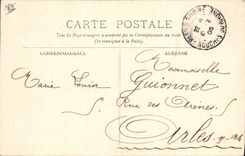 CARTE POSTALE
Tous les Pays étrangers n'acceptent pas la Correspondance au recto
(Se renseigner à la Poste).
CORRESPONDANCE
ADRESSE
Marie Louise
Mademoiselle
Guionnet
Rue des Arènes
Arles